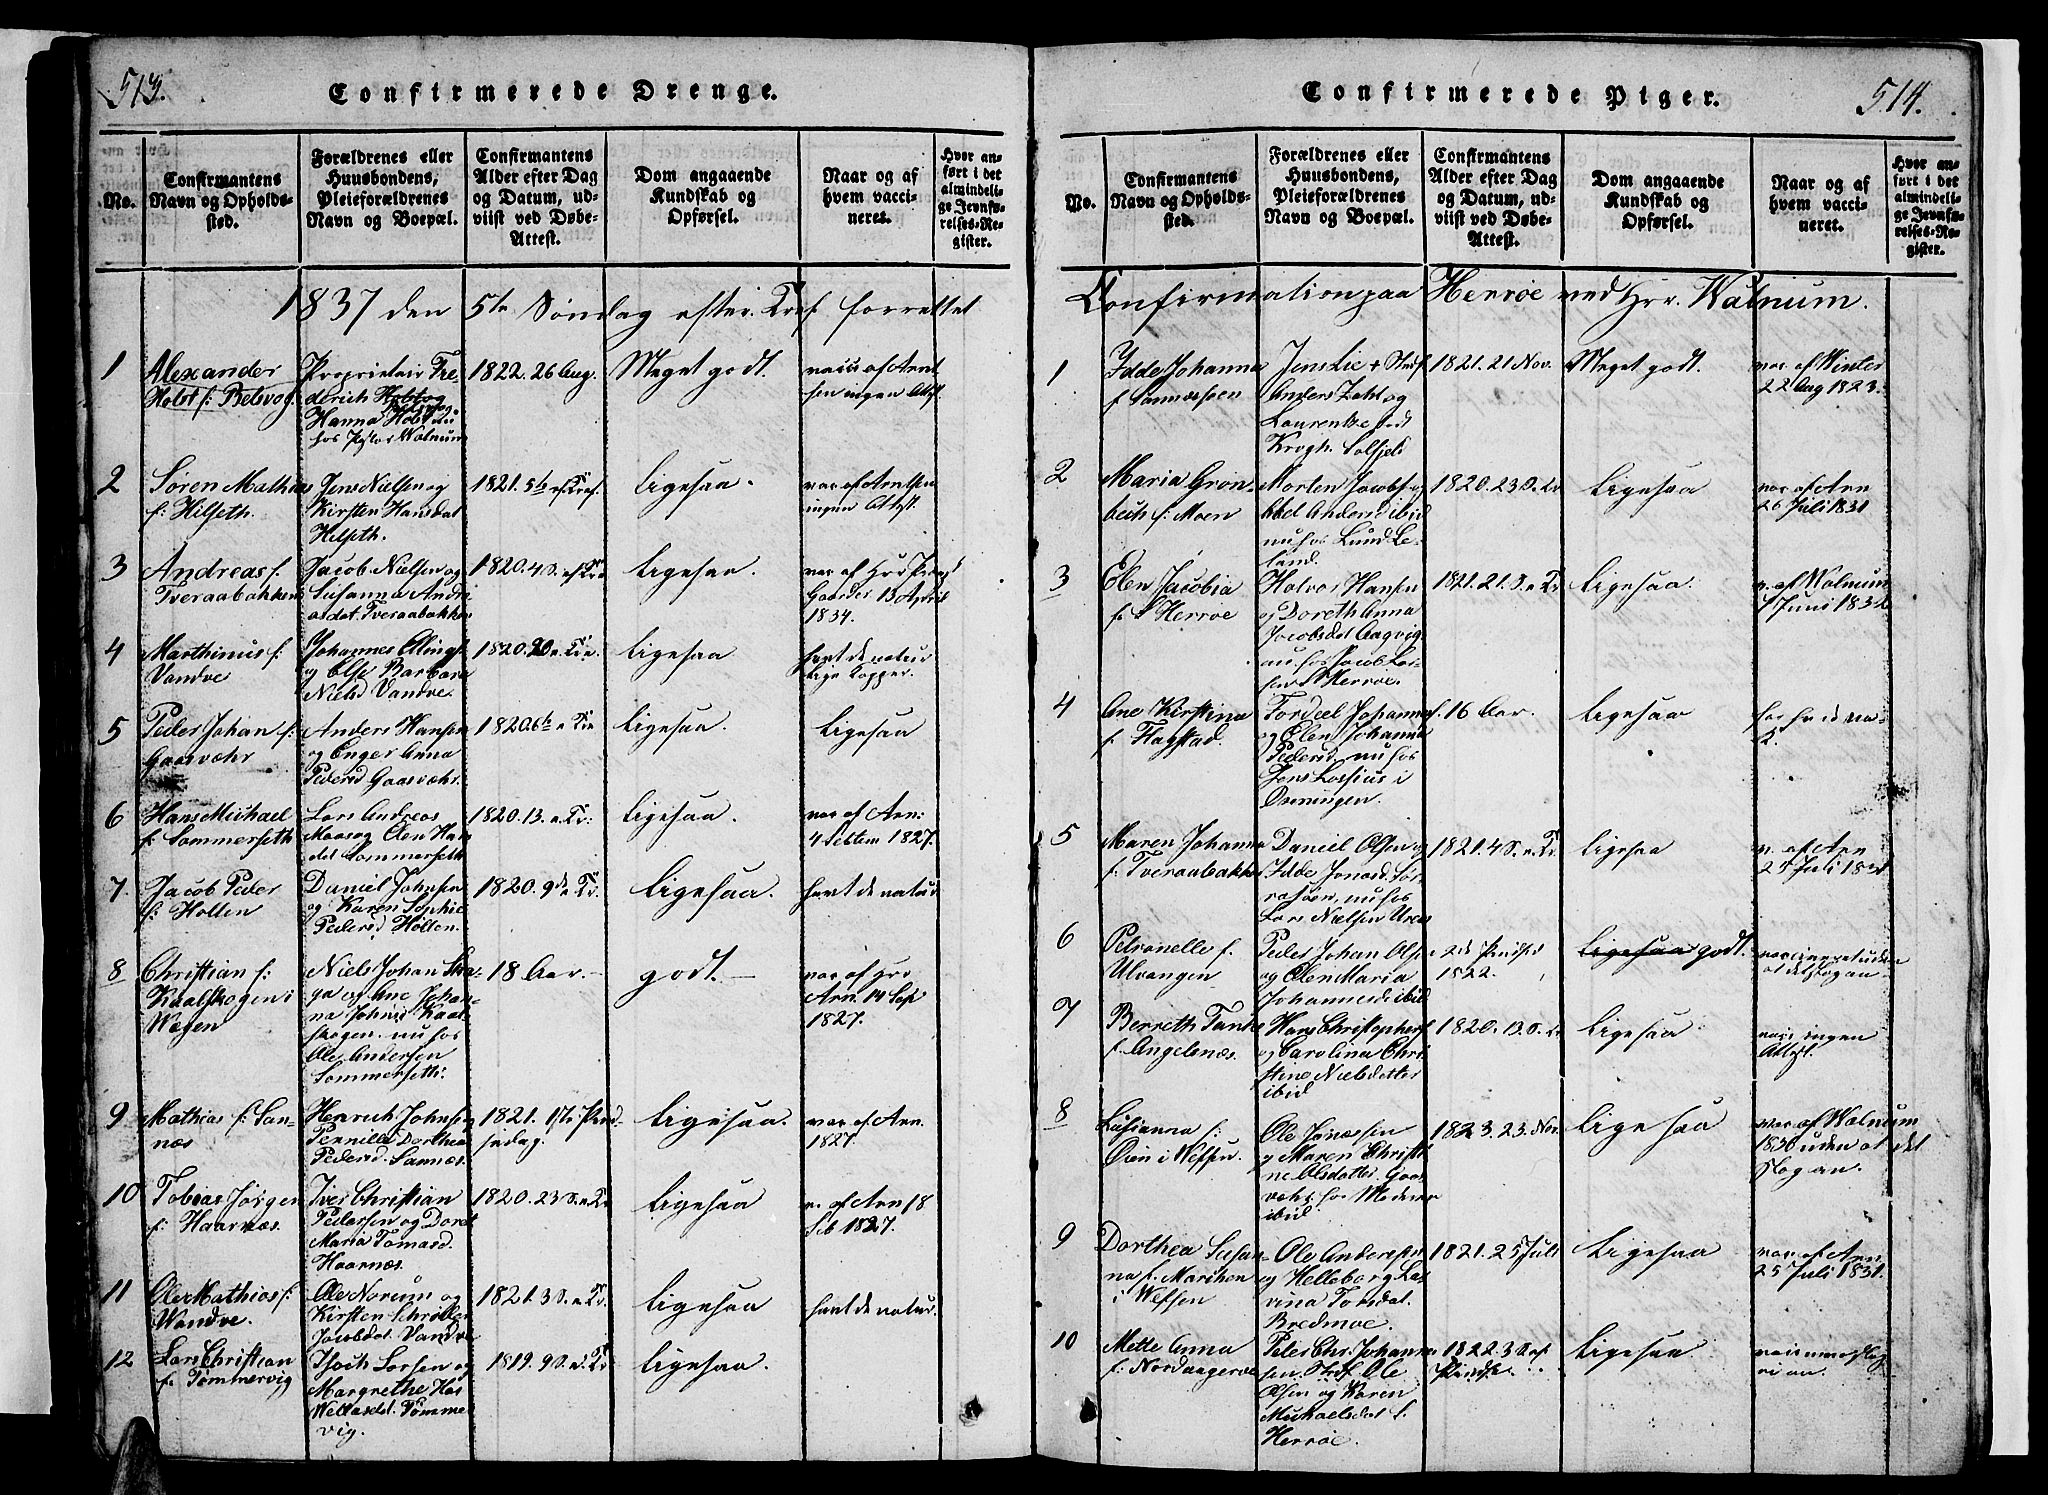 513.
Confirmerede Drenge.
No.
Confirmantens Navn og Opholdssted.
Forældrenes eller Huusbondens, Pleieforældrenes Navn og Boepæl.
Confirmantens Alder efter Dag og Datum, udviist ved Døbe-Attest.
Dom angaaende Kundskab og Opførsel.
Naar og af hvem vaccineret.
Hvor anført i det almindelige Jevnførelses-Register.
1837 den 5te Søndag efter Tref. forrettet
1
Alexander
Holst f: Belsvog
Proprietair Fre-
derich Holst og
Hanna Holst nu
hos Pastor Walnum
1822. 26 Aug.
Meget godt.
2
Søren Mathias
f: Hilseth.
Jens Nielsen og
Kirsten Hansdat
Hilseth.
1821. 5te ef. Tref.
Ligesaa.
vac. af Arntsen
ingen Attst.
3
Andreas f:
Tveraabakken
Jacob Nielsen og
Susanna Andre
asdat. Tveraabakken
1820. 4 S. ef. Tr.
Ligesaa.
13 April
1834.
4
Marthinus f:
Vandve
og Else Barbara
Nielsd Vandve.
1820. 20 e. Tr.
Ligesaa
havt de natur
lige Kopper.
5
Peder Johan f:
Gaasvær
Anders Hansen
og Enger Anna
Pedersd Gaasvær.
1820. 6te e Tr.
Ligesaa.
Ligesaa
6
Hans Michael
f: Sommerseth
Lars Andreas
Maas og Elen Han
dat Sommerseth
1820. 13. e. Tr:
Ligesaa.
vac. af Arn:
4 Septem 1827.
7.
Jacob Peder
f: Holten
Daniel Johnsen
og Karen Sophie
Pedersd Holten.
1820. 9de e Tr.
Ligesaa.
havt de natur.
8
Christian f:
Kaalskogen i
Wegen
Niels Johan
og Ane Johan-
na Johnsd Kaal
skogen. nu hos
Ole Andersen
Sommerseth.
18 Aar.
godt.
vac. af Hrr
Arn. 14 Sep
1827.
9
Mathias f: San-
næs
Henrich Johnsen og
Pernilla Dorthea
Pedersd. Sannæs.
Ligesaa.
vac. af Arn.
1827
10
Tobias Jørgen
f: Haarnæs.
Iver Christian
Pedersen og Doret
Maria Tomasd.
Haarnæs.
1820. 23 S. e. Tr.
Ligesaa
v. af Arn 18
Seb 1827.
11
Ole Mathias f:
Wandve.
Ole Norum og
Kirsten
Jacobdat. Vandve
1821. 3 S. e. Tr.
Ligesaa
havt de natur.
12
Lars Christian
f. Tømmervig
Larsen og
Margrethe
Tømmer
vig.
1819. 9 S. e. Tr.
Ligesaa.
514.
Confirmerede Piger.
No.
Confirmantens Navn og Opholdssted.
Forældrenes eller Huusbondens, Pleieforældrenes Navn og Boepæl.
Confirmantens Alder efter Dag og Datum, udviist ved Døbe-Attest.
Dom angaaende Kundskab og Opførsel.
Naar og af hvem vaccineret.
Hvor anført i det almindelige Jevnførelses-Register.
Confirmation paa Herrøe ved Hrr. Walnum.
1
Idde Johanna
f Sannessøen
Jens Lie + Stuf
Anders Zahl og
Laurentze født
Krogh. Solfjeld
1821. 21 Nov.
Meget godt.
vac. af Winter
22 Aug 1823.
2
Maria Grøn-
beich f: Moen
Morten Jacobs og
Abel Andersd ibid
nu hos Lund Le
land.
1820. 23 S. e Tr
Ligesaa
vac. af Arn
26 Juli 1831
3
Elen Jacobia
f: S Herrøe
Halvor Hansen
og Doreth Anna
Jacobsdat Aagvig
nu hos Jacob Lar
sen S Herrøe.
1821. 21. S. e Tr
Ligesaa.
v. af Walnum
4
Ane Kirstina
f. Flagstad.
og Elen Johanna
Pedersd. nu hos
Jens Lossius i
16 Aar.
Ligesaa
5
Maren Johanna
f: Tveraabakken
Daniel Olsen og
Idde Jonasd.
nu hos
Lars Nielsen
1821. 4 S. e. Tr.
Ligesaa
v. af Arn
25 Juli 1831
6
Petronelle f.
Ulvangen
Peder Johan Ols
og Elen Maria
Johannesd ibid
1822.
Ligesaa godt.
7
Berreth
f. Angelsnæs.
Hans Christophers
og Carolina Chri
stine Nielsdatter
ibid
1820. 13. S. Tr
Ligesaa
vacc ingen
Attest.
8
f:
Øien i Wefsen.
Ole Jonassen
og Maren Christi
ne Olsdatter. Gaas
vær. hos
ibid
1823. 23. Nov.
Ligesaa
vac. af Walnum
1836 uden at det
slog an.
9
Dorthea Susan
na f. Marihen
i Wefsen
Ole Andersen
og Helleborg La
vina Torsdat.
Bredmoe.
1821. 25 Juli
Ligesaa
vac. af Arn
25 Juli 1831.
10
Mette Anna
f: Nordaagerøe
Peter Chr. Johann
sen. Stuf Ole
Olsen og Karen
Michaelsdat f.
Herrøe.
1822. 3 S. ef
Ligesaa.